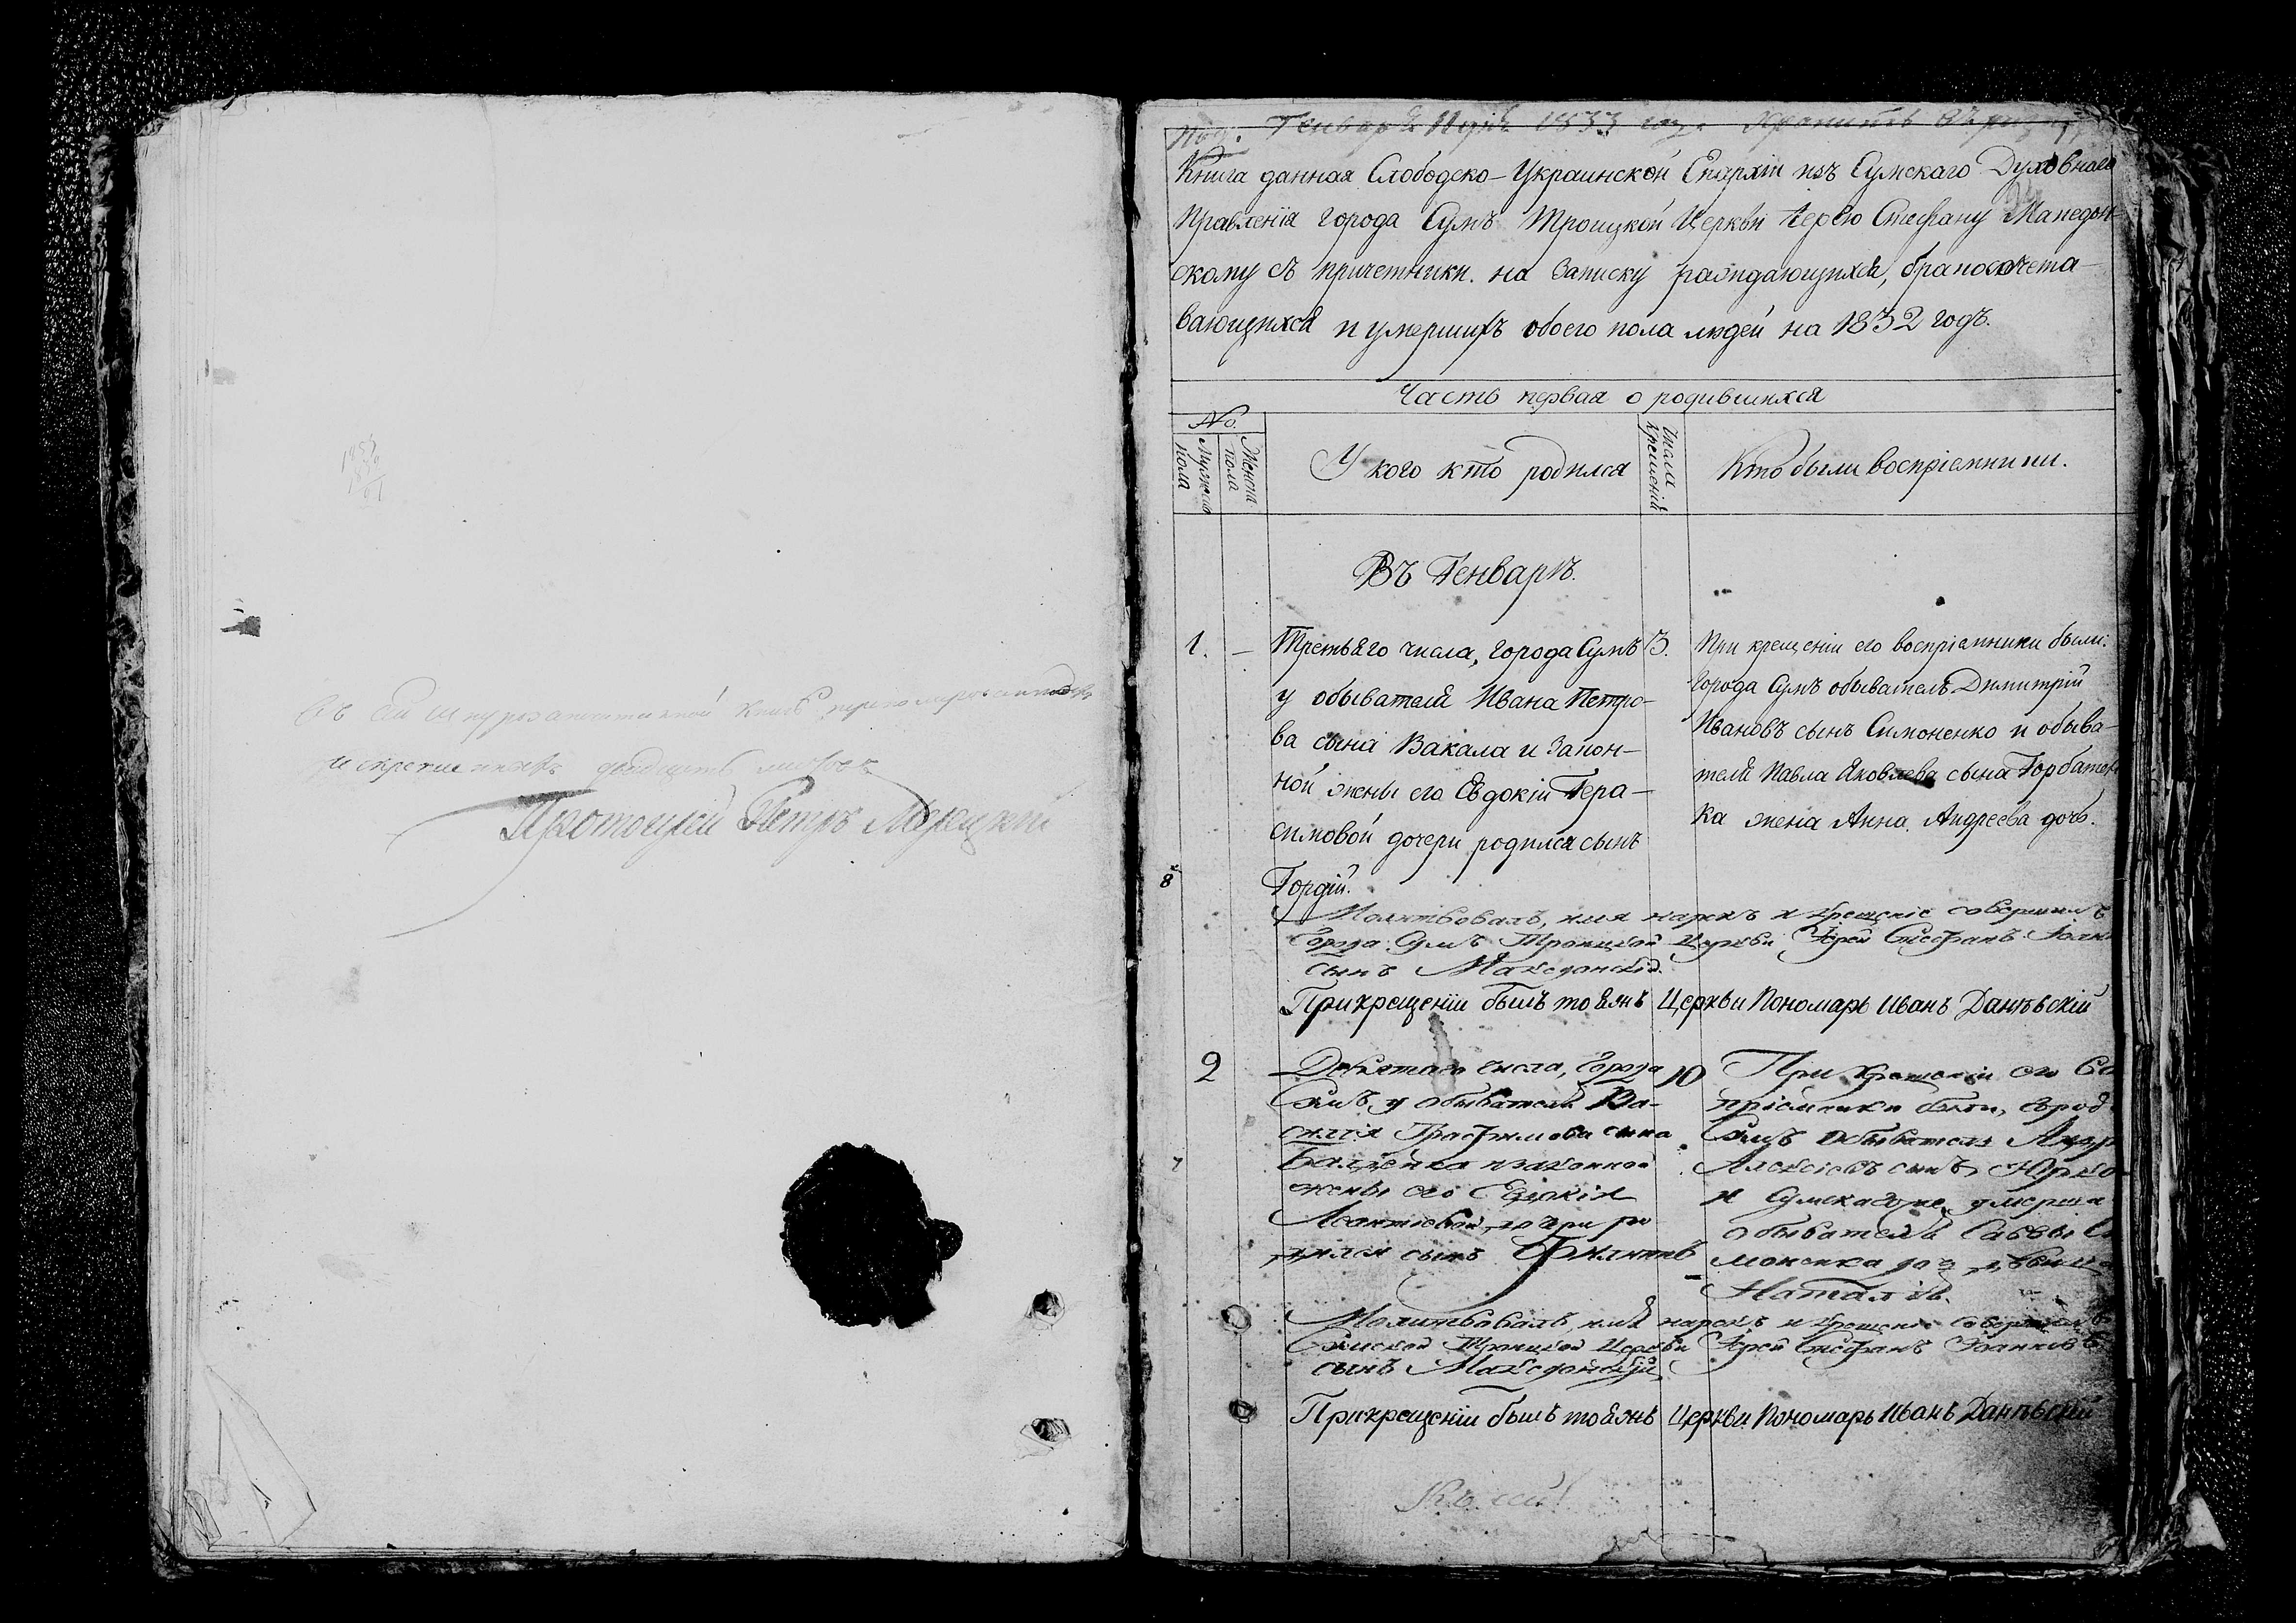 Въ сей шнурозапечатанной книгѣ
Протоиерей Петръ
Генвар 1833
Книга данная Слободско-Украинской Епархіи изъ Сумскаго Духовнаго
Правленія города Сумъ Троицкой Церкви Іерею Стефану Македон-
скому съ причетники. на Записку раждающихся, бракосочета-
вающихся и умершихъ обоего пола людей на 1832 годъ.
Часть первая о родившихся
No.
Мужеска
пола
Женска
пола
У кого кто родился
Числа
крещенія
Кто были воспріемники.
Въ Генварѣ.
1. – Третьяго числа, города Сумъ
у обывателя Ивана Петро-
ва сына Вакала и Закон-
ной жены его Евдокіи Гера-
симовой дочери родился сынъ
Гордій.
3.
При крещеніи его воспріемники были:
города Сумъ обыватель Димитрій
Ивановъ сынъ Симоненко и обыва-
теля Павла Яковлева сына Горбатен-
ка жена Анна Андреева дочь.
8
Молитвовалъ, имя нарекъ и крещеніе совершилъ
города Сумъ Троицкой Церкви Іерей Стефанъ
сынъ Македонскій.
При крещеніи былъ тояжъ Церкви Пономарь Иванъ Данѣвскій
2
Девятаго числа, города
Сумъ, у обывателя Ва-
силія сына
законной
жены его
Леонтіевой дочери ро-
дился сынъ Филиппъ
10
При крещеніи его во-
пріемники были, город
Сумъ обыватель
Алексіевъ сынъ
и умерша
обывателя Саввы Си
моненка дочь дѣвица
Наталія.
Молитвовалъ, имя нарекъ и крещеніе совершилъ
Сумской Троицкой Церкви Іерей Стефанъ Іоанновъ
сынъ Македонскій
При крещеніи былъ тояжъ Церкви Пономарь Иванъ Данѣвскій